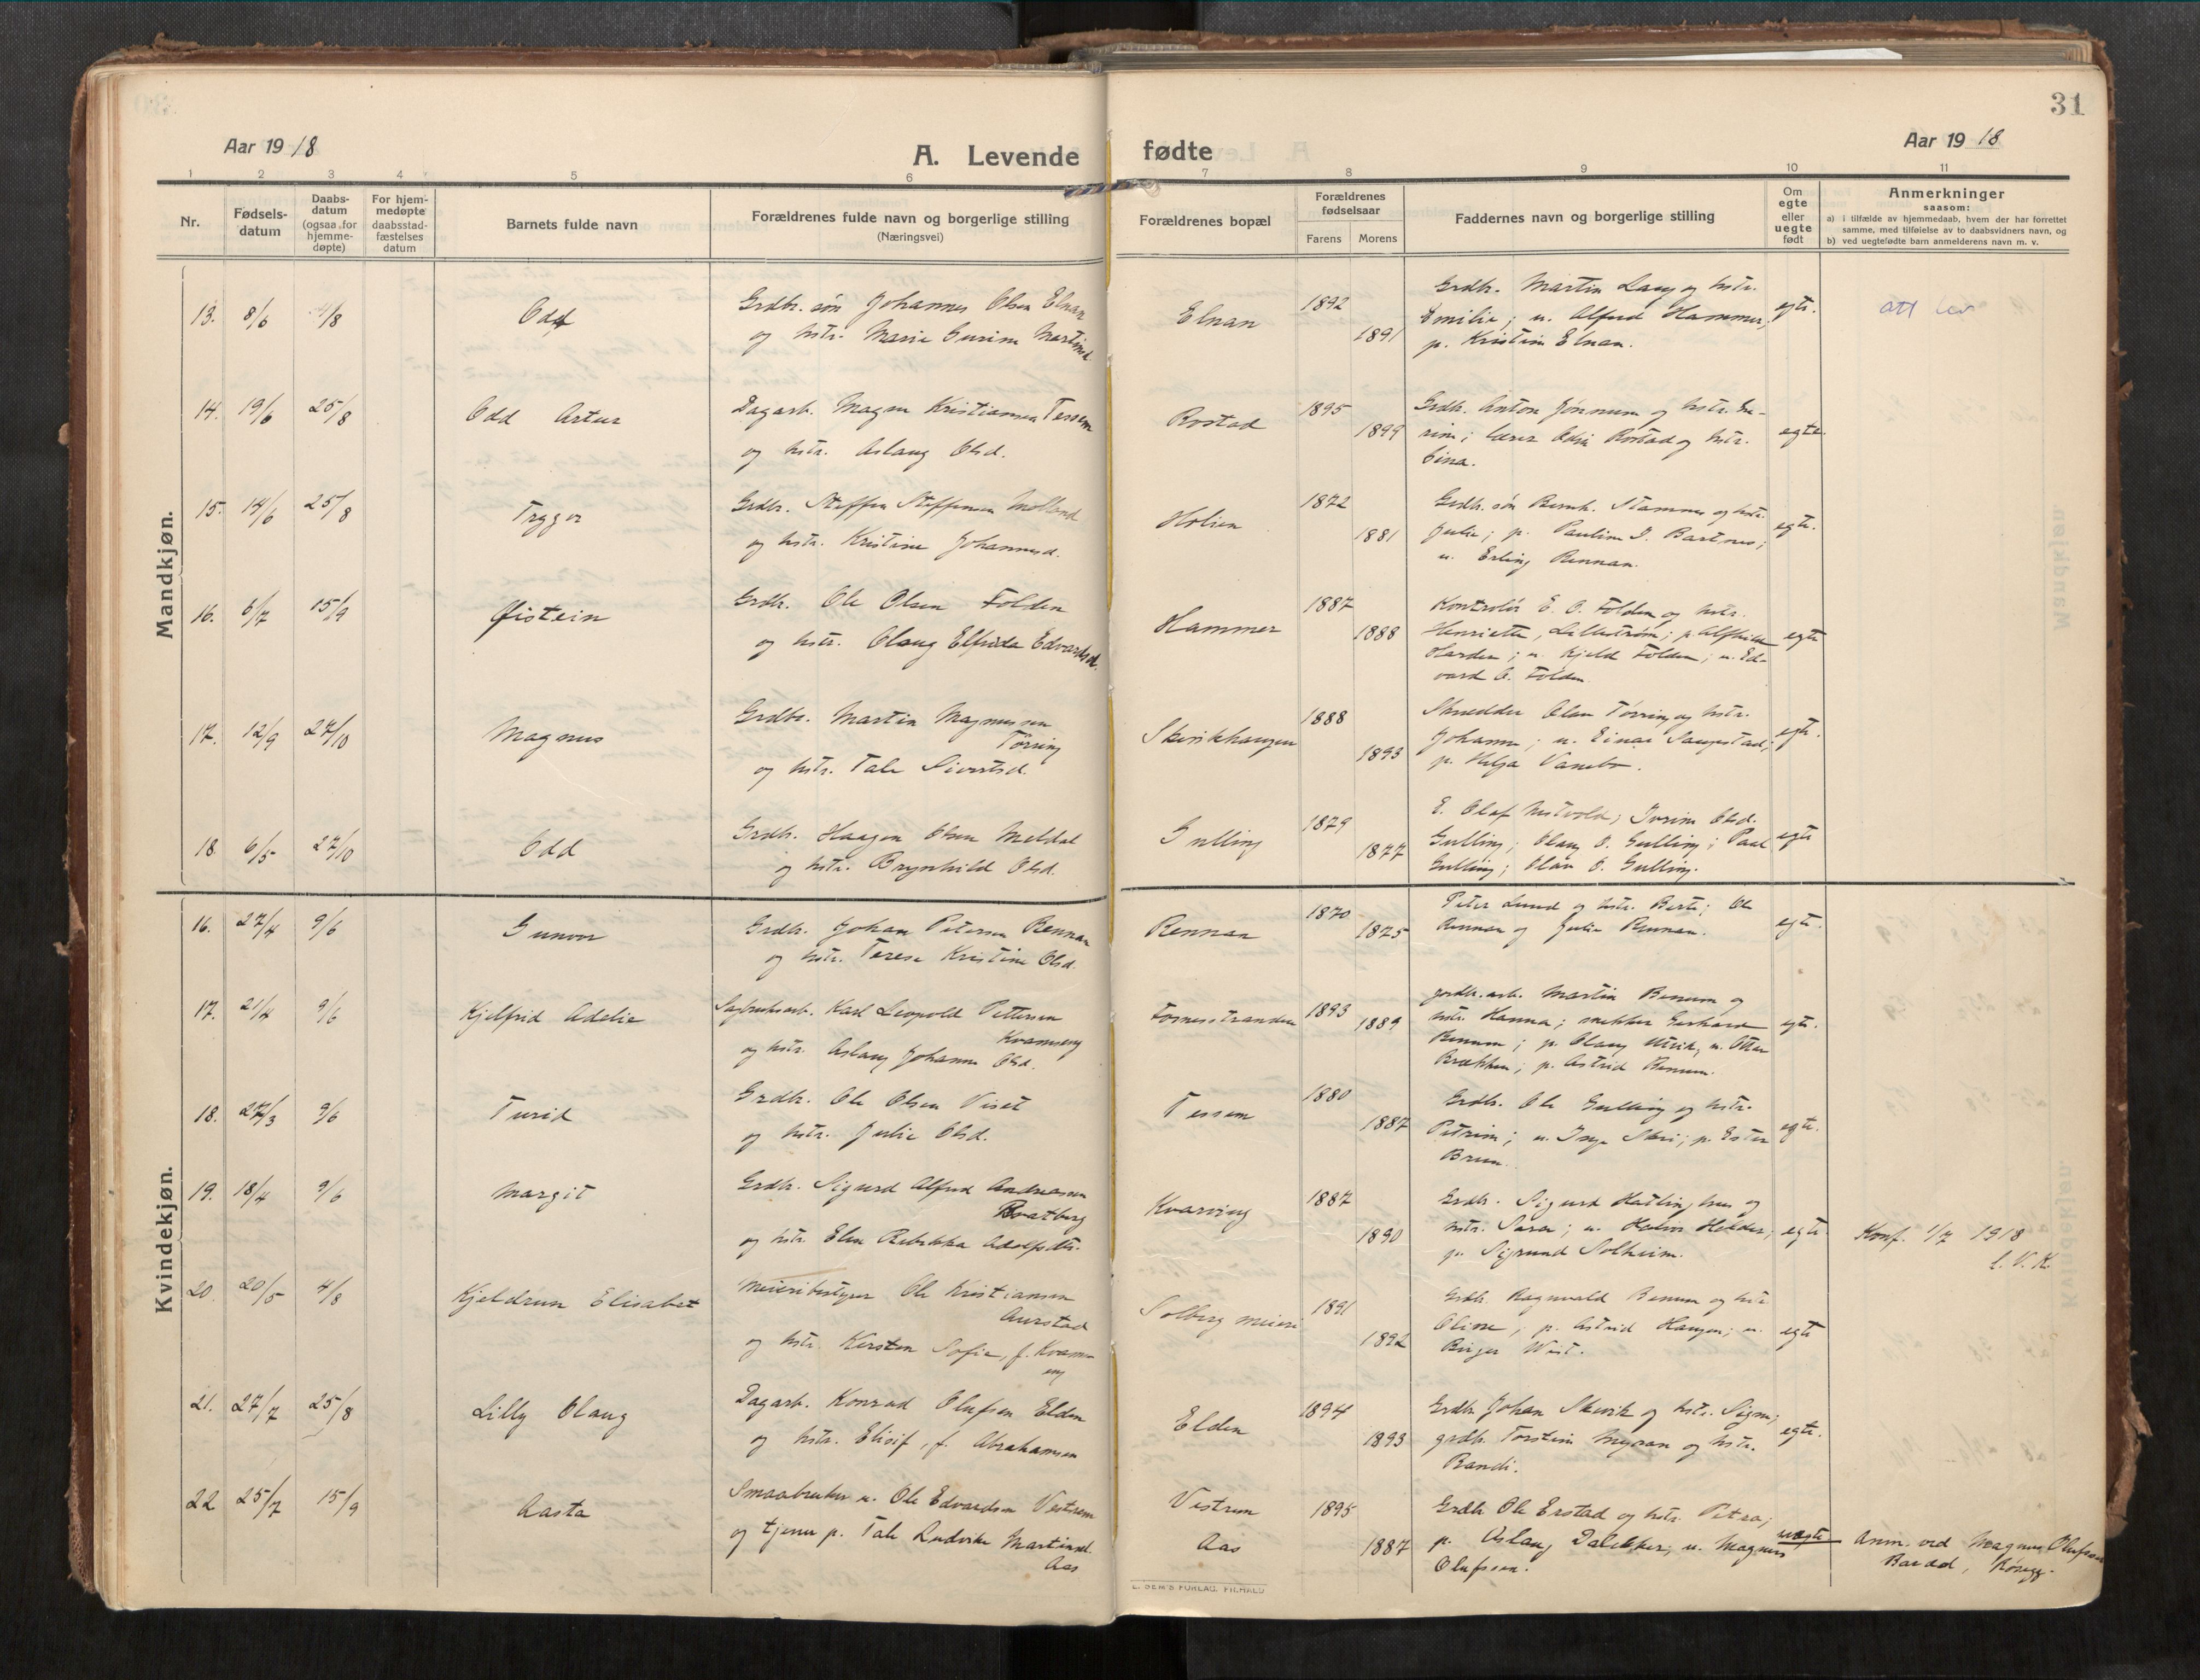 31
Aar 1918
A. Levende fødte
Aar 1918
1 2 3 4 5 6 7 8 9 10 11
Nr.
Fødsels-
datum
Daabs-
datum
(ogsaa for
hjemme-
døpte)
For hjem-
medøpte
daabsstad-
fæstelses
datum
Barnets fulde navn
Forældrenes fulde navn og borgerlige stilling
(Næringsvei)
Forældrenes bopæl
Forældrenes
fødselsaar
Farens Morens
Faddernes navn og borgerlige stilling
Om
egte
eller
uegte
født
Anmerkninger
saasom:
a) i tilfælde av hjemmedaab, hvem der har forrettet
samme, med tilføielse av to daabsvidners navn, og
b) ved uegtefødte barn anmelderens navn m. v.
Mandkjøn.
13. 8/6 4/8 Odd
Grdbr. søn Johannes Olsen Elnan
og hstr. Marie Gurine Martinsd.
Elnan 1892 1891
Grdbr. Martin Lang og hstr.
Emilie; u. Alfred Hammer,
p. Kristine Elnan.
egte.
att lev
14. 19/6 25/8 Odd Artur
Dagarb. Magne Kristiansen Tessem
og hstr. Aslaug Olsd.
Rostad 1895 1899
Grdbr. Anton Jønnum og hstr. Gu-
rine; lærer Odin Rostad og hstr.
egte.
15. 14/6 25/8 Trygve
Grdbr. Steffen Steffensen Molland
og hstr. Kristine Johannesd.
Holien 1872 1881
Grdbr. søn Bernh. Stamnes og hstr.
Julie; p. Pauline J. Bartnes;
u. Erling Rennan.
egte.
16. 6/7 15/9 Øistein
Grdbr. Ole Olsen Folden
og hstr. Olaug Elfrida Edvardsd.
Hammer 1887 1888
Kontrolør E. O. Folden og hstr.
Henriette, Lillestrøm; p. Alfhild
Harden; u. Kjeld Folden; u. Ed-
vard O. Folden
egte
17. 12/9 27/10 Magnus
Grdbr. Martin Magnussen
Tørring
og hstr. Tale Sivertsd.
Skevikhaugen 1888 1893
Skredder Olav Tørring og hstr.
Johanna; u. Einar Saugestad;
p. Helga Vanebo.
egte.
18. 6/5 27/10 Odd
Grdbr. Haagen Olsen Meldal
og hstr. Brynhild Olsd.
Gulling 1879 1877
E. Olaf Hustvold; Jorim Olsd.
Gulling; Olaug O. Gulling; Paul
Gulling; Olav O. Gulling.
egte
Kvindekjøn.
16. 27/4 9/6 Gunvor
Grdbr. Johan Petersen Rennan
og hstr. Terese Kristine Olsd.
Rennan 1870 1875
Peter Lund og hstr. Berte; Ole
Rennan og Julie Rennan.
egte.
17. 21/4 9/6 Kjelfrid Adelie
Sagbruksarb. Karl Leopold Pettersen
Kvameng
og hstr. Aslaug Johanne Olsd.
Fornesstranden 1893 1889
jordbr.arb. Martin Benum og
hstr. Hanna; snekker Gerhard
Benum; p. Olaug Utvik, u. Ottar
Brækken; p. Astrid Benum.
egte.
18. 27/3 9/6 Turid
Grdbr. Ole Olsen Viset
og hstr. Julie Olsd.
Tessem 1880 1887
Grdbr. Ole Gulling og hstr.
Petrine; u. Inge Skei; p. Ester
Brun.
egte.
19. 18/4 9/6 Margit
Grdbr. Sigurd Alfred Andreassen
Bratberg
og hstr. Elen Rebekka Adolfsdtr.
Kvarving 1887 1890
Grdbr. Sigurd Hatlinghus og
hstr. Sara; u. Halvor Holder;
p. Sigrund Solheim.
egte.
Konf. 1/7 1918
L. V. K.
20. 20/5 4/8 Kjeldrun Elisabet
Meieribestyrer Ole Kristiansen
Aurstad
og hstr. Kersten Sofie, f. Kvam-
eng
Solberg meieri 1891 1892
Grdbr. Ragnvald Benum og hstr.
Oline; p. Astrid Haugen; u.
Birger Wist.
egte
21. 27/7 25/8 Lilly Olaug
Dagarb. Konrad Olufsen Elden
og hstr. Elisif, f. Abrahamsen
Elden 1894 1893
Grdbr. Johan Skevik og hstr. Signe;
grdbr. Torstein Myran og hstr.
Randi.
egte.
22 25/7 15/9 Aasta
Smaabruker u. Ole Edvardsen Vestrum
og tjener p. Tale Ludvike Martinsd.
Aas
Vestrum 1895
Aas 1887
Grdbr. Ole Erstad og hstr. Petra;
p. Aslaug Dalekker; u. Magnus
Olufsen.
uegte
Anm. ved Magnus Olufsen